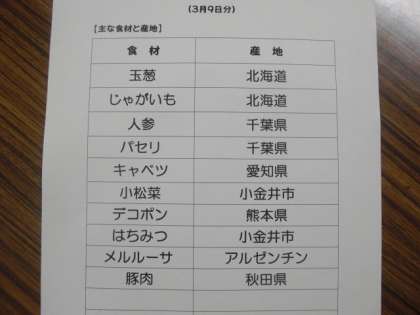 (3月9日分)
【主な食材と産地】
食 材 産 地
玉葱 北海道
じゃがいも 北海道
人参 千葉県
パセリ 千葉県
キャベツ 愛知県
小松菜 小金井市
デコポン 熊本県
はちみつ 小金井市
メルルーサ アルゼンチン
豚肉 秋田県